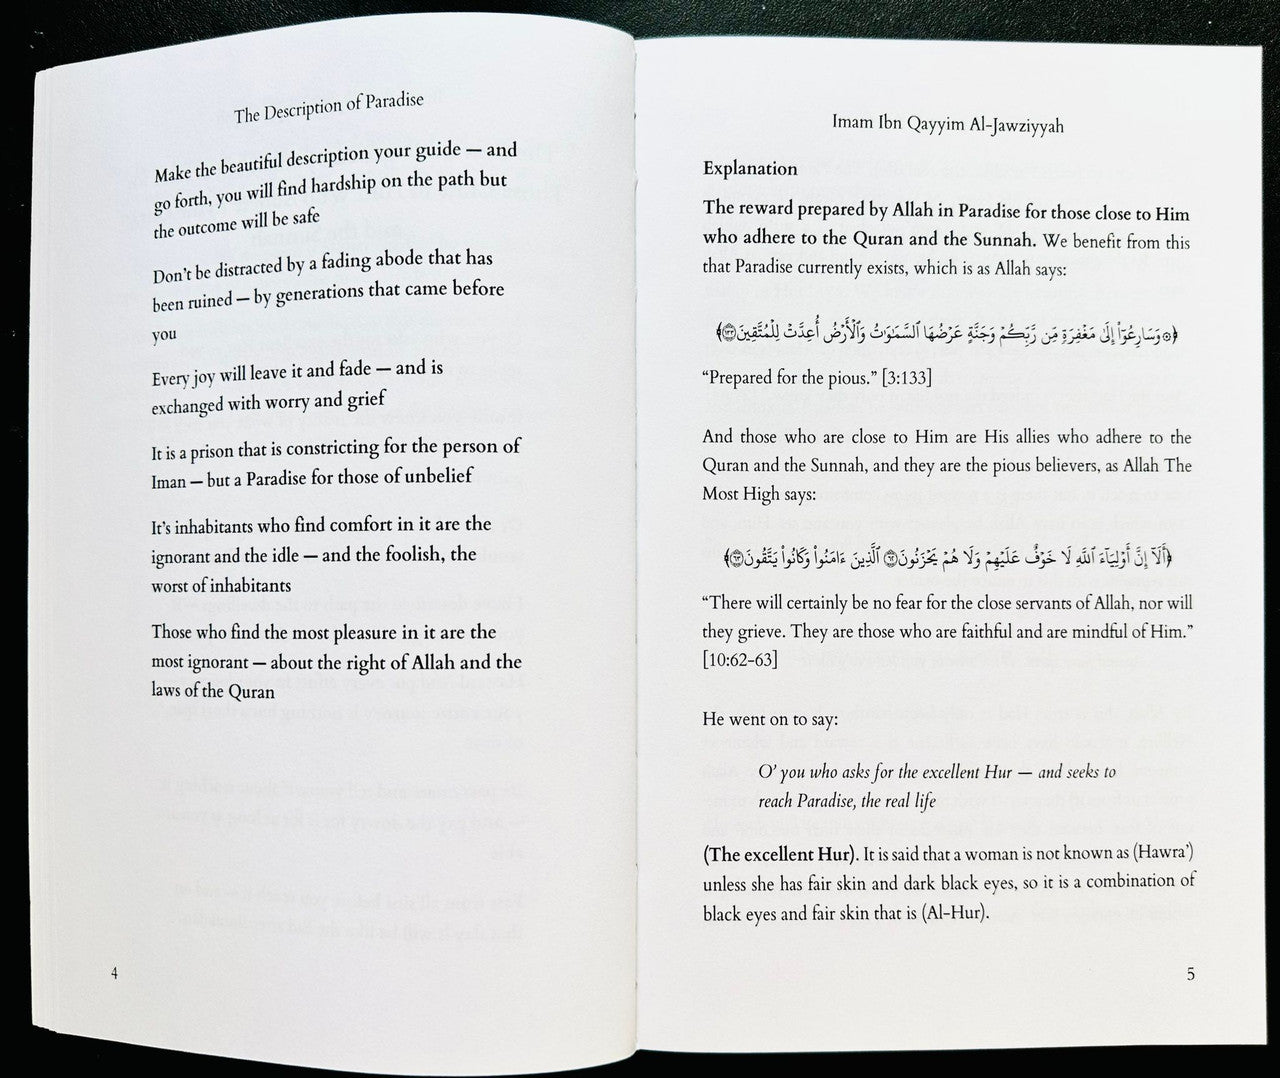 The Description of Paradise
Make the beautiful description your guide — and
go forth, you will find hardship on the path but
the outcome will be safe
Don't be distracted by a fading abode that has
been ruined — by generations that came before
you
Every joy will leave it and fade — and is
exchanged with worry and grief
It is a prison that is constricting for the person of
Iman — but a Paradise for those of unbelief
It's inhabitants who find comfort in it are the
ignorant and the idle — and the foolish, the
worst of inhabitants
Those who find the most pleasure in it are the
most ignorant — about the right of Allah and the
laws of the Quran
4
Imam Ibn Qayyim Al-Jawziyyah
Explanation
The reward prepared by Allah in Paradise for those close to Him
who adhere to the Quran and the Sunnah. We benefit from this
that Paradise currently exists, which is as Allah says:
﴿۞وَسَارِعُوٓا۟ إِلَىٰ مَغْفِرَةٍ مِّن رَّبِّكُمْ وَجَنَّةٍ عَرْضُهَا ٱلسَّمَـٰوَٰتُ وَٱلْأَرْضُ أُعِدَّتْ لِلْمُتَّقِينَ ١٣٣﴾
“Prepared for the pious.” [3:133]
And those who are close to Him are His allies who adhere to the
Quran and the Sunnah, and they are the pious believers, as Allah The
Most High says:
﴿أَلَآ إِنَّ أَوْلِيَآءَ ٱللَّهِ لَا خَوْفٌ عَلَيْهِمْ وَلَا هُمْ يَحْزَنُونَ ٦٢ ٱلَّذِينَ ءَامَنُوا۟ وَكَانُوا۟ يَتَّقُونَ ٦٣﴾
“There will certainly be no fear for the close servants of Allah, nor will
they grieve. They are those who are faithful and are mindful of Him.”
[10:62-63]
He went on to say:
O' you who asks for the excellent Hur — and seeks to
reach Paradise, the real life
(The excellent Hur). It is said that a woman is not known as (Hawra')
unless she has fair skin and dark black eyes, so it is a combination of
black eyes and fair skin that is (Al-Hur).
5